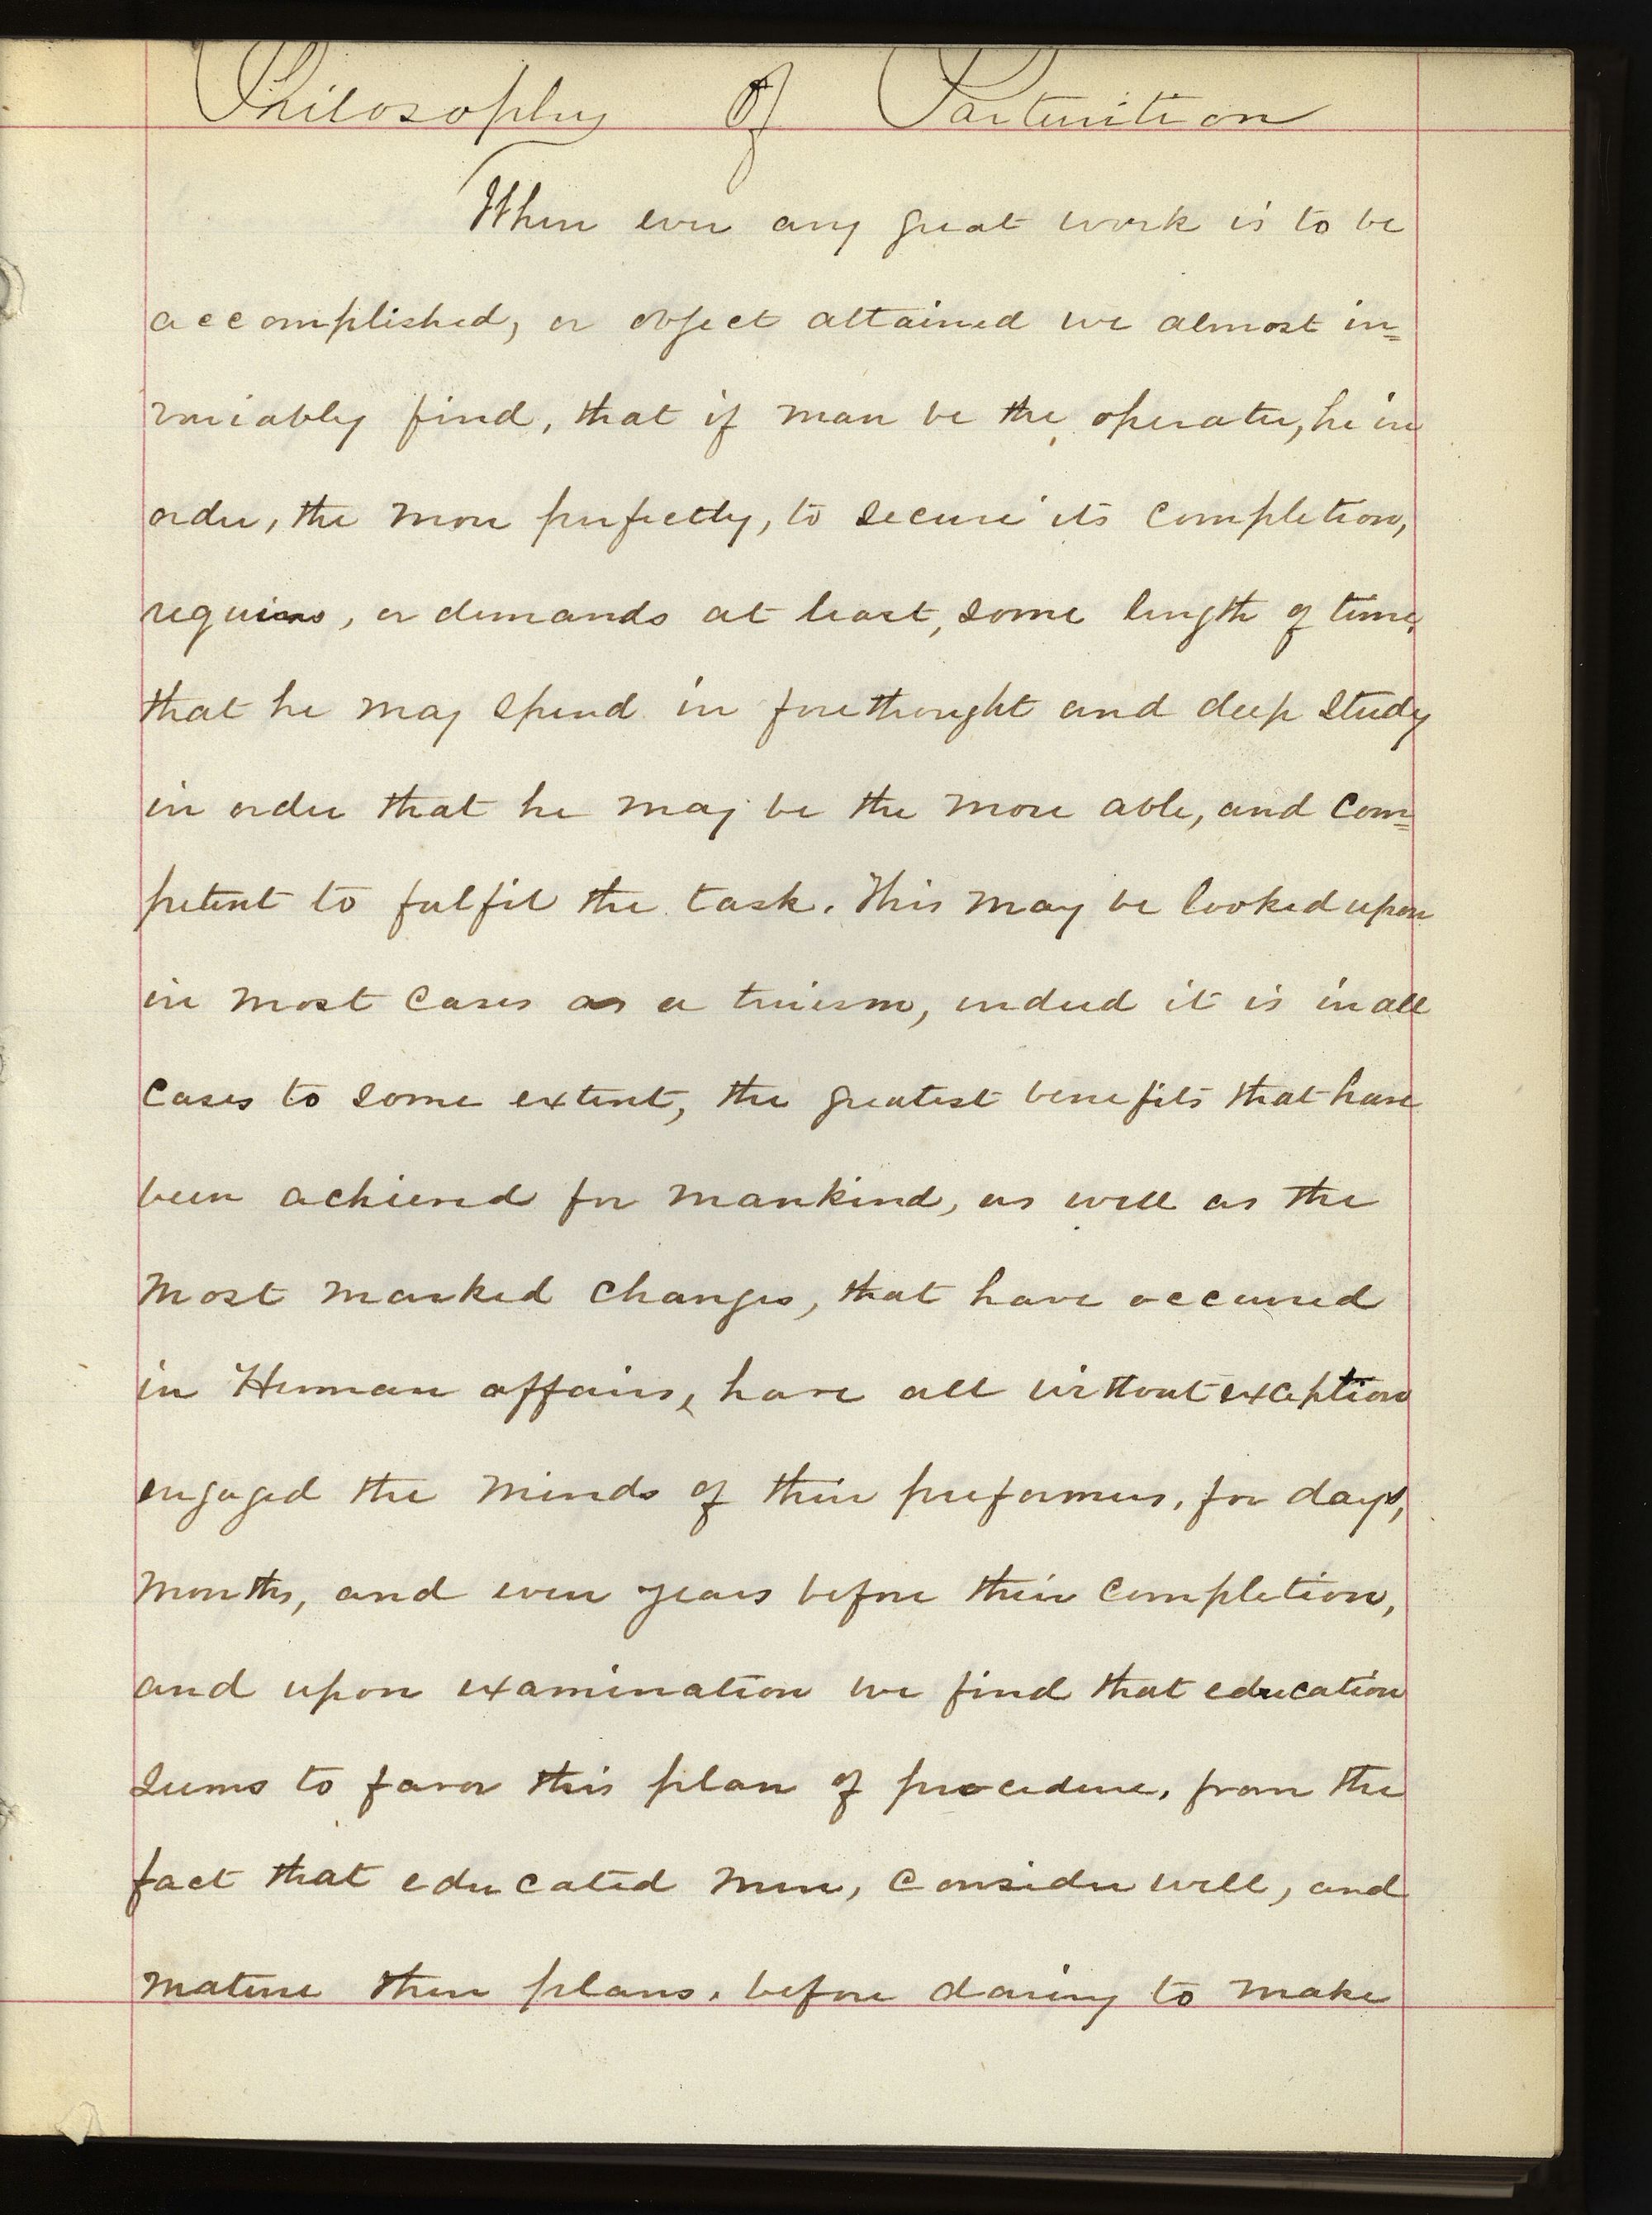 Philosophy Of Parturition
When ever any great work is to be
accomplished, or object attained we almost in=
variably find, that if man be the operator, he in
order, the more perfectly, to secure its completion,
requires, or demands at least, some length of time,
that he may spend in forethought and deep study
in order that he may be the more able, and com=
petent to fulfil the task. This may be looked upon
in most cases as a truism, indeed it is in all
cases to some extent, the greatest benefits that have
been achieved for mankind, as well as the
most marked changes, that have occurred
in Human affairs, have all without exception
engaged the minds of their preformers, for days,
months, and even years before their completion,
and upon examination we find that education
seems to favor this plan of procedure, from the
fact that educated men, consider well, and
mature their plans, before daring to make